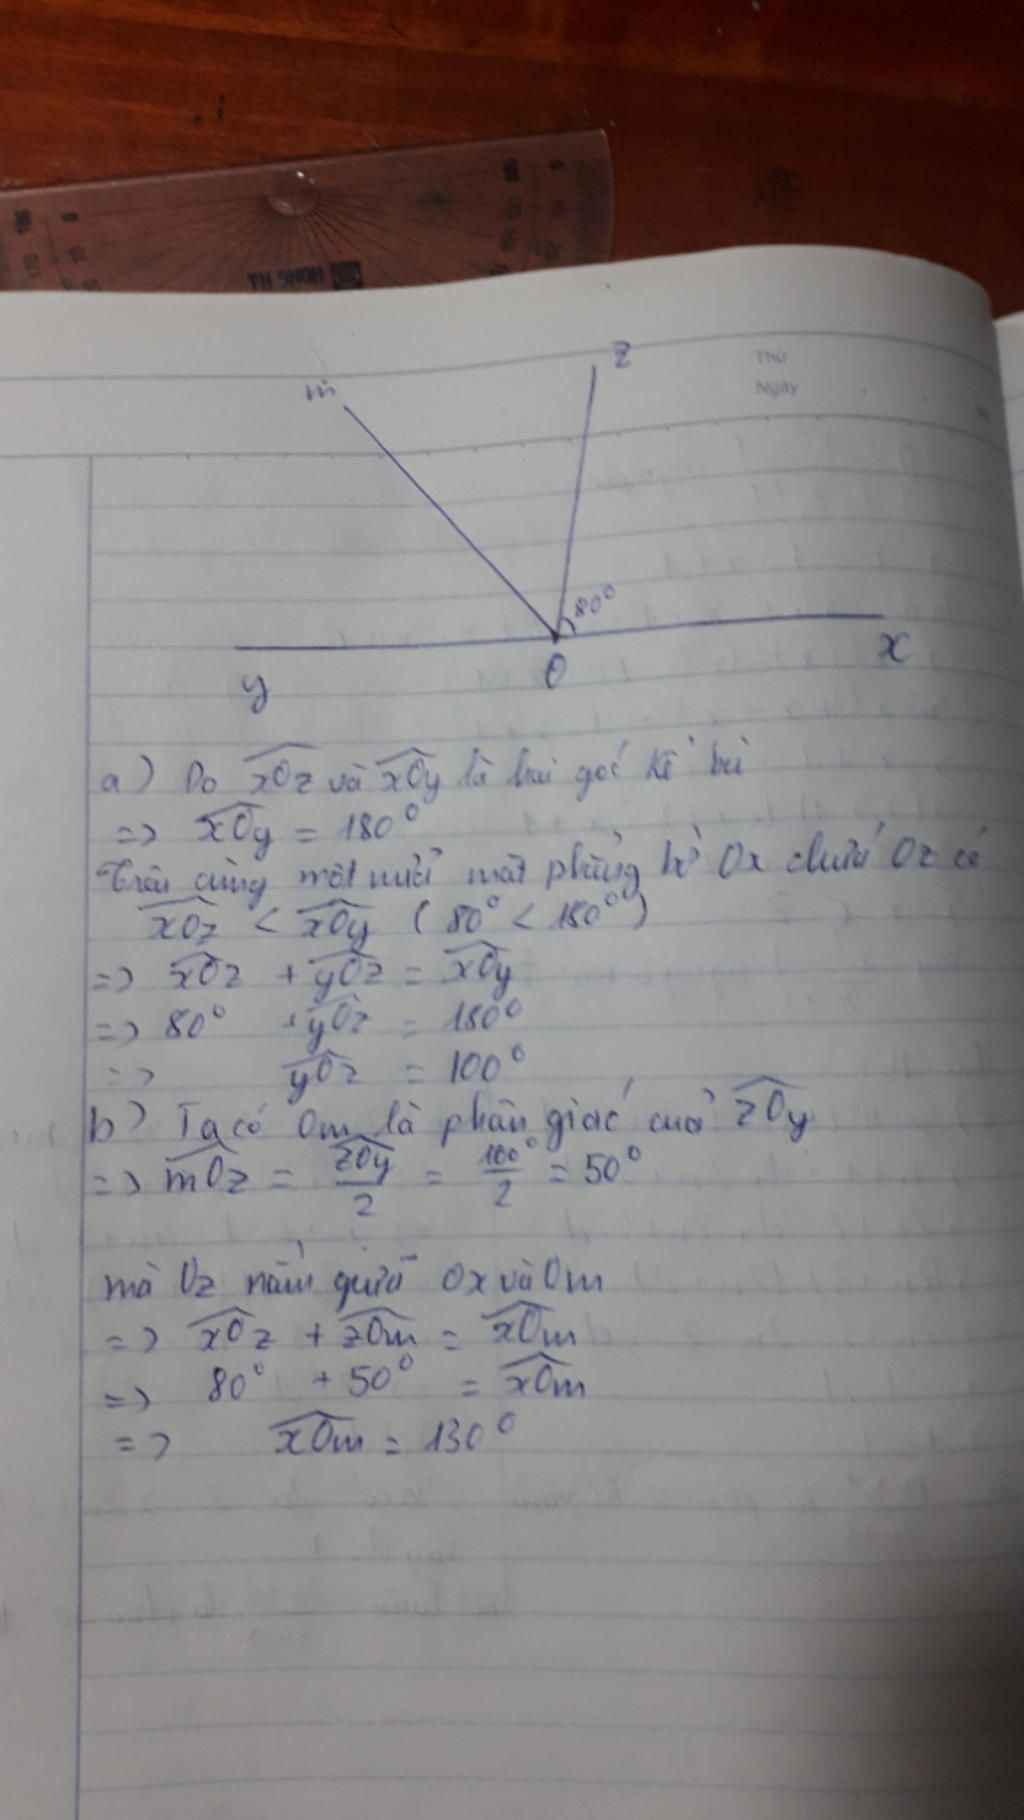 HONG HA
Thứ
Ngày
m
z
80°
y
O
x
a) Do xOz và xOy là hai góc kề bù
=> xOy = 180°
Trên cùng một nửa mặt phẳng bờ Ox chứa Oz có
xOz < xOy (80° < 180°)
=> xOz + yOz = xOy
=> 80° + yOz = 180°
=> yOz = 100°
b) Ta có Om là phân giác của zOy
=> mOz = zOy/2 = 100°/2 = 50°
mà Oz nằm giữa Ox và Om
=> xOz + zOm = xOm
=> 80° + 50° = xOm
=> xOm = 130°